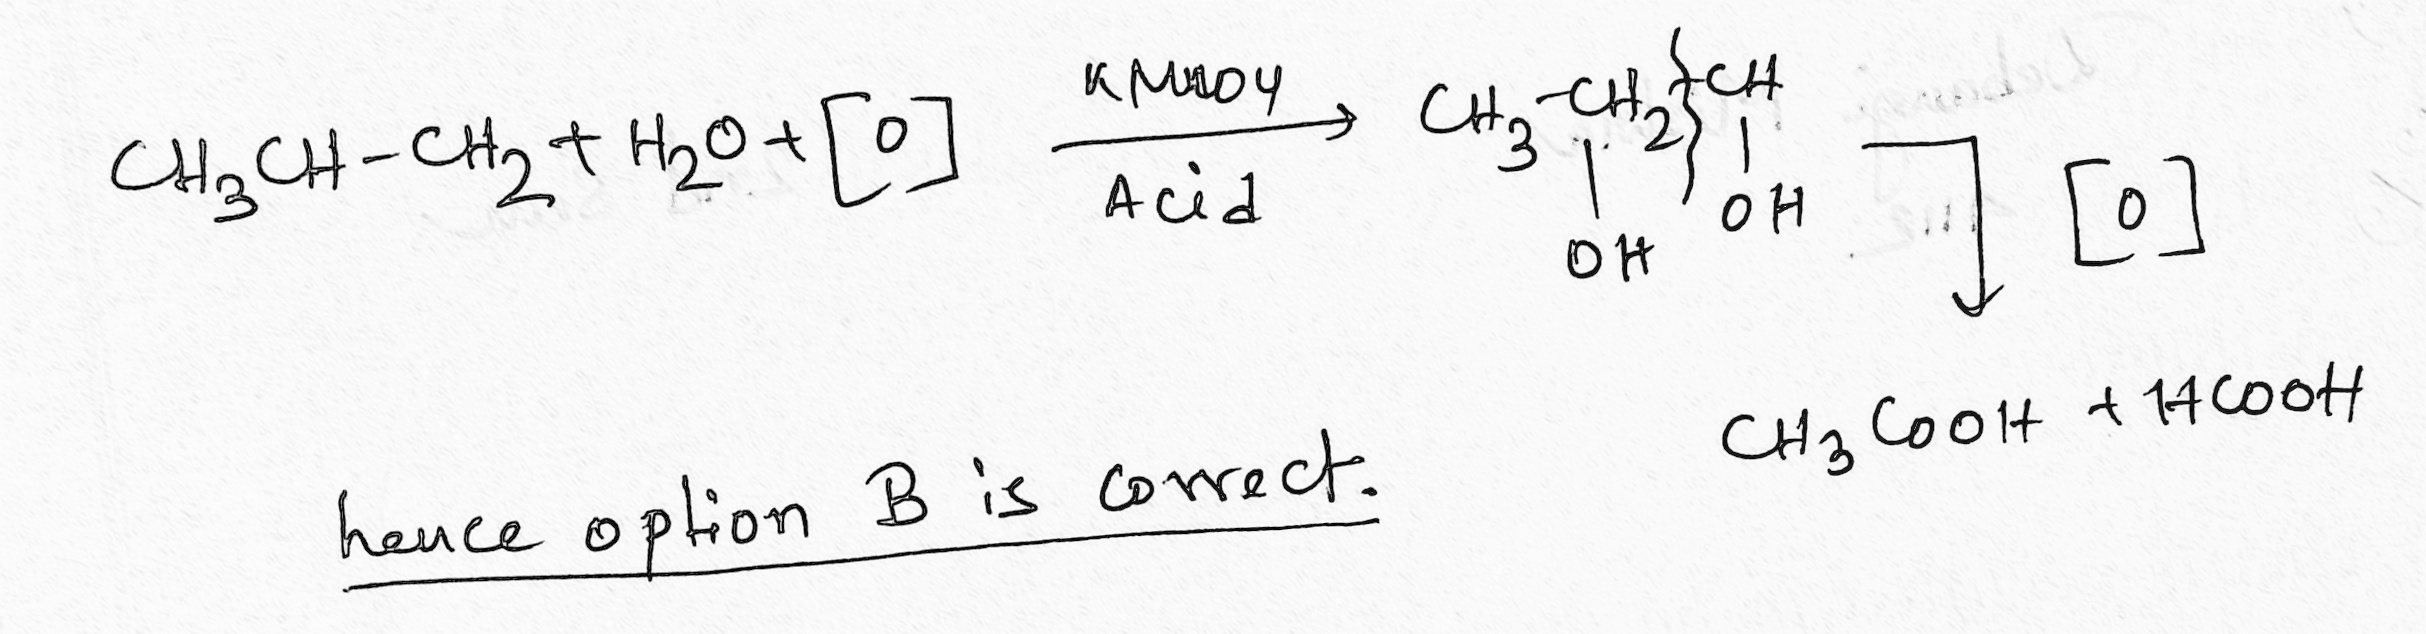 CH3CH-CH2 + H2O + [O] KMnO4 Acid CH3-CH2 CH
OH OH
[O]
CH3COOH + HCOOH
hence option B is correct.